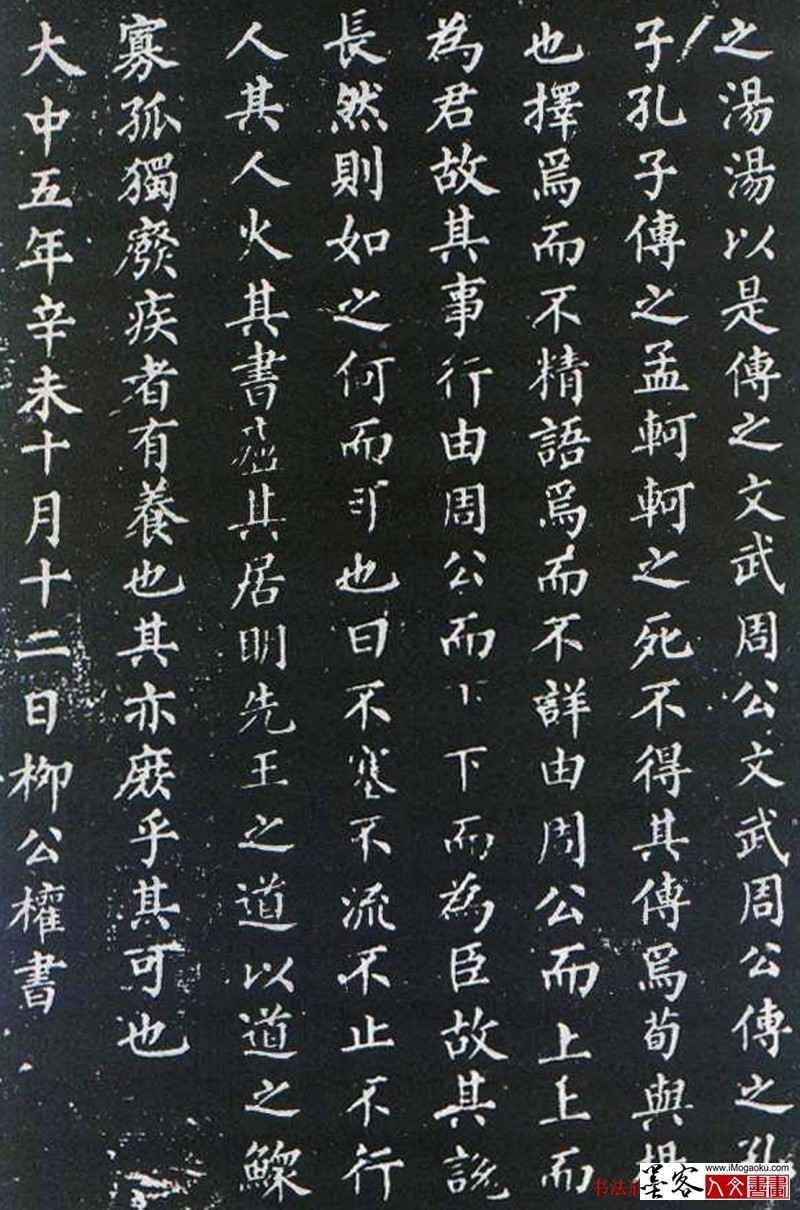 之湯湯以是傳之文武周公文武周公傳之孔
子孔子傳之孟軻軻之死不得其傳焉荀與揚
也擇焉而不精語焉而不詳由周公而上上而
為君故其事行由周公而下下而為臣故其說
長然則如之何而可也曰不塞不流不止不行
人其人火其書廬其居明先王之道以道之鰥
寡孤獨廢疾者有養也其亦庶乎其可也
大中五年辛未十月十二日柳公權書
书法
墨客
www.iMogaoku.com
人文書畫